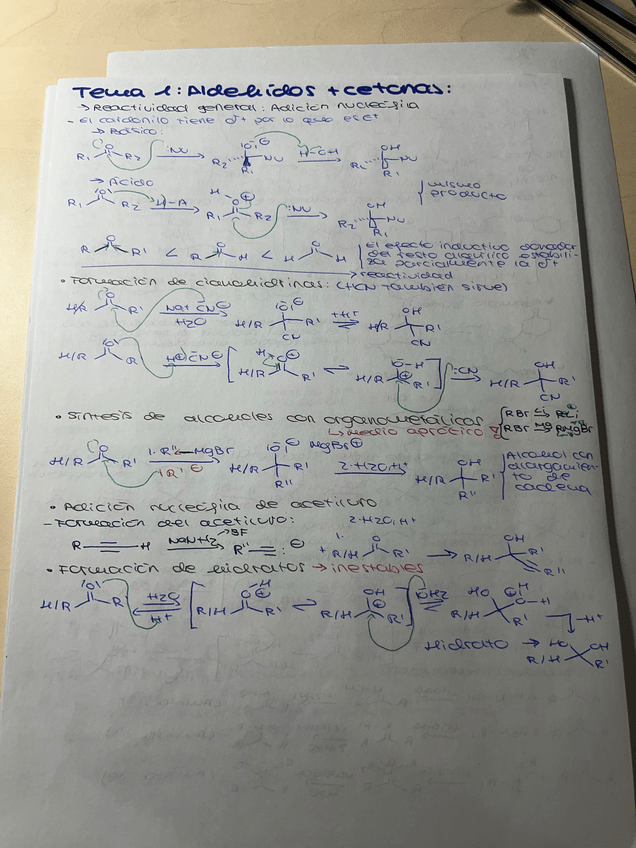 Tema 1: Aldehidos + cetonas:
→ Reactividad general: Adición nucleófila
- El carbonilo tiene δ+ por lo que es E+
→ Básico:
R1 O R2 :Nu → R2 |O|⊖ Nu R1 H-OH → R2 OH Nu R1
→ Ácido
R1 |O| R2 H-A → R1 H O⊕ R2 :Nu → R2 OH Nu R1
mismo producto
R O R' < R O H < H O H
El efecto inductivo donador del resto alquílico estabiliza parcialmente la δ+
reactividad
• Formación de cianohidrinas: (HCN también sirve)
H/R O R' Na+ CN⊖ H2O → H/R |O|⊖ R' CN +H+ ⇌ H/R OH R' CN
H/R |O| R H⊕ CN⊖ [ H/R H O⊕ R' ⇌ H/R O-H ⊕ R' ] :CN → H/R OH R' CN
• Síntesis de alcoholes con organometálicos
↳ medio aprótico
RBr Li → RLi
RBr Mg → RMgBr
H/R O R' 1. R''-MgBr |R'⊖ → H/R |O|⊖ MgBr⊕ R' R'' 2. H2O, H+ → H/R OH R' R''
Alcohol con alargamiento de cadena
• Adición nucleófila de acetiluro
- Formación del acetiluro: 2. H2O, H+
R ≡ H NaNH2 → R'' ≡ :⊖ + 1. R/H O R' → R/H OH R' R''
• Formación de hidratos → inestables
H/R |O| R H2O H+ ⇌ [ R/H O⊕ H R' ⇌ R/H O-H ⊕ R' ] OH2 ⇌ R/H HO H O-H R' -H+
Hidrato → HO OH R/H R'